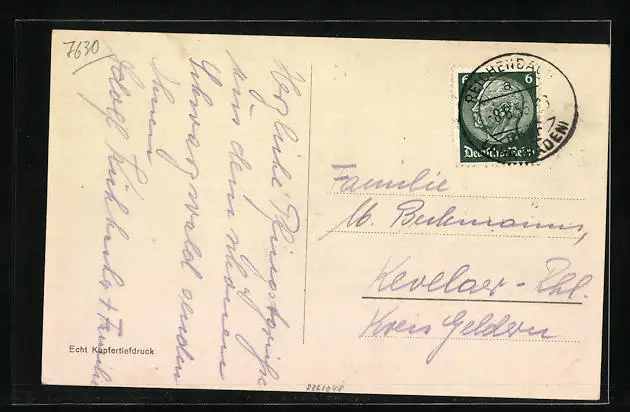 7630
Herzliche Pfingstgrüße
aus dem schönen
Schwarzwald senden
Ihnen
Adolf
Echt Kupfertiefdruck
6 6
Deutsches Reich
REICHENBACH
a
(BADEN)
Familie
M. Beckmanns,
Kevelaer-Rhl.
Kreis Geldern
8861048